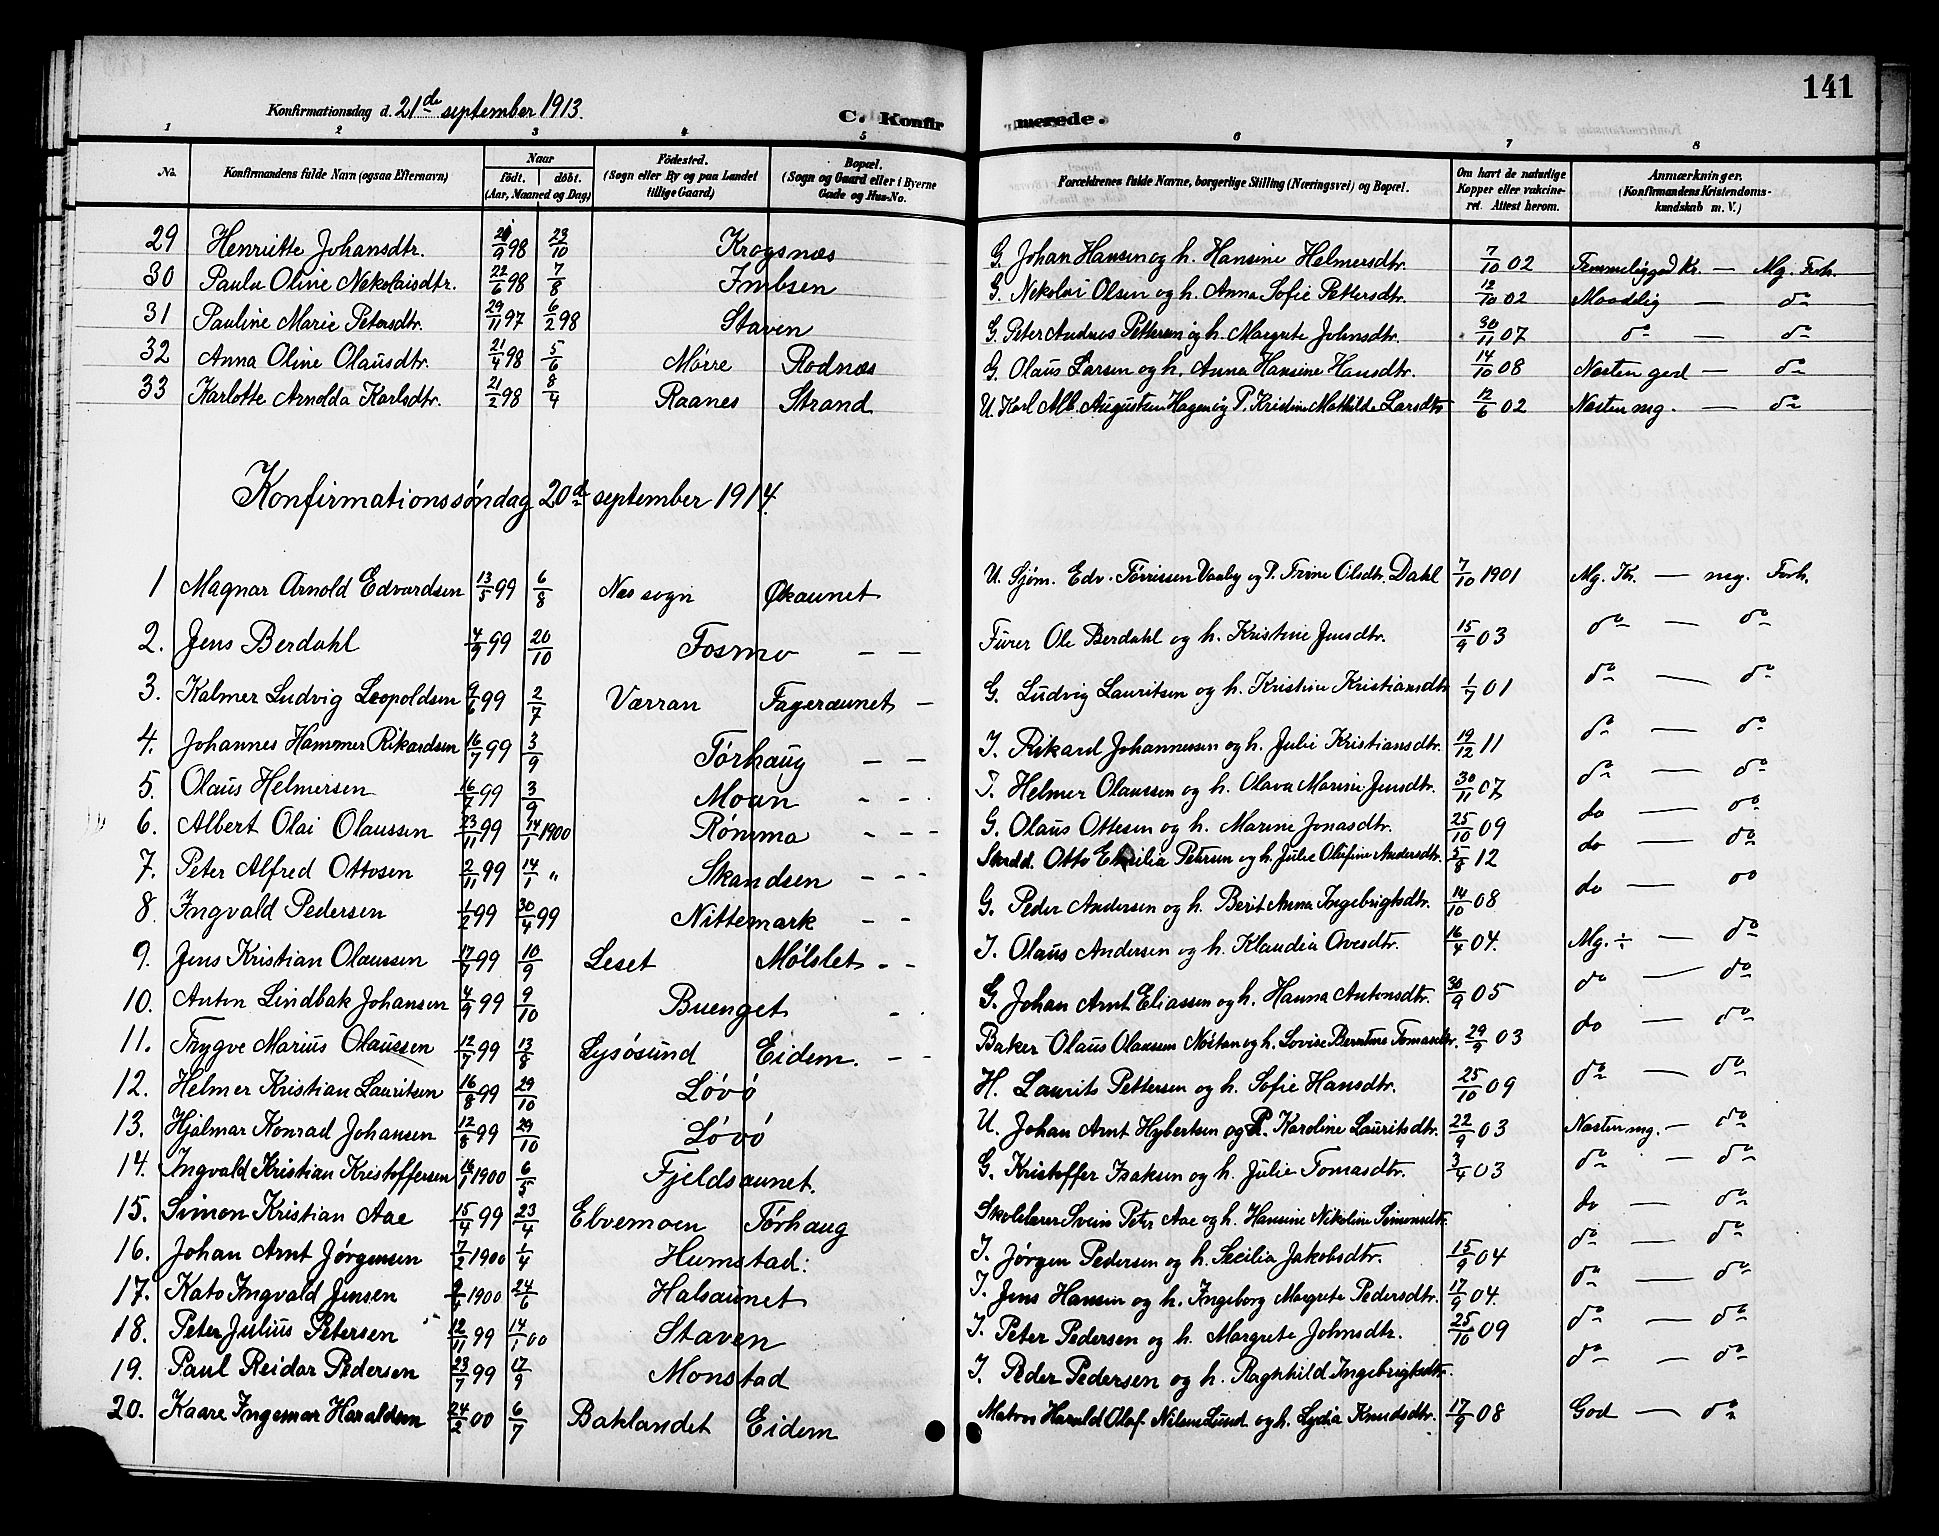 141
Konfirmationsdag d. 21de september 1913.
C. Konfirmerede.
1 2 3 4 5 6 7 8
No. Konfirmandens fulde Navn (ogsaa Efternavn) Naar født. døbt. (Aar, Maaned og Dag) Födested. (Sogn eller By og paa Landet tillige Gaard) Bopæl. (Sogn og Gaard eller i Byerne Gade og Hus-No. Forældrenes fulde Navne, borgerlige Stilling (Næringsvei) og Bopæl. Om havt de naturlige Kopper eller vakcineret. Attest herom. Anmærkninger. (Konfirmandens Kristendomskundskab m. V.)
29 Henriette Johansdtr. 9 98 23/10 Krogsnæs G. Johan Hansen og h. Hansine Helmersdtr. 7/10 02 Temmelig god Kr. — Mg. Forh.
30 Paula Oline Nekolaisdtr. 22/6 98 7/8 Imbsen G. Nekolai Olsen og h. Anna Sofie Pettersdtr. 12/10 02 Maadelig — do
31 Pauline Marie Petersdtr. 29/11 97 6/2 98 Staven G. Peter Andreas Pettersen og h. Margrete Johnsdtr. 30/11 07 do — do
32 Anna Oline Olausdtr. 21/4 98 5/6 Mørre Rodnæs G. Olaus Larsen og h. Anna Hansine Hansdtr. 14/10 08 Næsten god — do
33 Karlotte Arnolda Karlsdtr. 21/2 98 8/4 Raanes Strand U. Karl Alb. Augustsen Hagen og P. Kristine Mathilde Larsdtr 12/6 02 Næsten mg. — do
Konfirmationssøndag 20de september 1914.
1 Magnar Arnold Edvardsen 13/5 99 6/8 Næs sogn Økaunet U. Sjøm. Edv. Tørrissen Vaaby og P. Trine Olsdtr. Dahl 7/10 1901 Mg. Kr. — mg. Forh.
2. Jens Berdahl 4/9 99 20/10 Fosmo — — Furer Ole Berdahl og h. Kristine Jensdtr. 15/9 03 do — do
3. Kalmer Ludvig Leopoldsen 9/6 99 2/7 Værran Fageraunet — G. Ludvig Lauritsen og h. Kristine Kristiansdtr 1/7 01 do — do
4. Johannes Hammer Rikardsen 16/7 99 3/9 Tørhaug — — I. Rikard Johannessen og h. Julie Kristiansdtr. 19/12 11 do — do
5. Olaus Helmersen 16/7 99 3/9 Moan - - . Helmer Olaussen og h. Olava Marine Jensdtr. 30/11 07 do — do
6. Albert Olai Olaussen 23/11 99 14/1 1900 Rømma - - - G. Olaus Ottesen og h. Marine Jonasdtr. 25/10 09 do — do
7. Peter Alfred Ottosen 2/11 99 14/1 " Skandsen - - - Otto Petersen og h. Julie Olufine Andersdtr. 5/8 12 do — do
8. Ingvald Pedersen 1/2 99 30/4 99 Nittemark - - G. Peder Andersen og h. Berit Anna Ingebrigtsdtr. 14/10 08 do — do
9. Jens Kristian Olaussen 17/7 99 10/9 Leset Mølslet - - I. Olaus Andersen og h. Klaudia Ovesdtr. 16/4 04. Mg. ÷ — do
10. Anton Lindbak Johansen 4/9 99 9/10 Buenget - . G. Johan Arnt Eliassen og h. Hanna Antonsdtr. 30/9 05 do — do
11. Trygve Marius Olaussen 12/7 99 13/8 Lysøsund Eidem. - - Baker Olaus Olaussen og h. Lovise Berntine Tomasdtr. 29/9 03 do — do
12. Helmer Kristian Lauritsen 16/8 99 29/10 Løvø H. Laurits Pettersen og h. Sofie Hansdtr. 25/10 09 do — do
13. Hjalmar Konrad Johansen 12/8 99 29/10 Løvø U. Johan Arnt Hybertsen og P. Karoline Lauritsdtr. 22/9 03 Næsten mg. — do
14. Ingvald Kristian Kristoffersen 16/1 1900 6/5 Fjeldsaunet. G. Kristoffer Isaksen og h. Julie Tomasdtr. 3/4 03 do — do
15. Simon Kristian Aae 15/4 99 23/4 Elvemoen Tørhaug Skolelærer Svein Peter Aae og h. Hansine Nikoline Simonsdtr. do — do
16. Johan Arnt Jørgensen 7/2 1900 1/4 Humstad: I. Jørgen Pedersen og h. Secilia Jakobsdtr. 15/9 04 do — do
17. Kato Ingvald Jensen 9/4 1900 24/6 Halsaunet I. Jens Hansen og h. Ingeborg Margrete Pedersdtr. 17/9 04. do — do
18. Peter Julius Petersen 12/11 99 14/1 00 Staven I. Peter Pedersen og h. Margrete Johnsdtr. 25/10 09 do — do
19. Paul Reidar Pedersen 23/7 99 17/9 Monstad I. Peder Pedersen og h. Raghhild Ingebrigtsdtr. do — do
20. Kaare Ingemar Haraldsen 24/2 00 6/7 Baklandet Eidem Matros Harald Olaf Nilsen Lund og h. Lydia Knudsdtr. 17/9 08 God — do